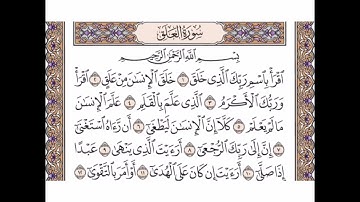 سُورَةُ العَلَقِ
بِسْمِ ٱللَّهِ ٱلرَّحْمَٰنِ ٱلرَّحِيمِ
ٱقْرَأْ بِٱسْمِ رَبِّكَ ٱلَّذِى خَلَقَ ١ خَلَقَ ٱلْإِنسَٰنَ مِنْ عَلَقٍ ٢ ٱقْرَأْ
وَرَبُّكَ ٱلْأَكْرَمُ ٣ ٱلَّذِى عَلَّمَ بِٱلْقَلَمِ ٤ عَلَّمَ ٱلْإِنسَٰنَ
مَا لَمْ يَعْلَمْ ٥ كَلَّآ إِنَّ ٱلْإِنسَٰنَ لَيَطْغَىٰٓ ٦ أَن رَّءَاهُ ٱسْتَغْنَىٰٓ
٧ إِنَّ إِلَىٰ رَبِّكَ ٱلرُّجْعَىٰٓ ٨ أَرَءَيْتَ ٱلَّذِى يَنْهَىٰ ٩ عَبْدًا
إِذَا صَلَّىٰٓ ١٠ أَرَءَيْتَ إِن كَانَ عَلَى ٱلْهُدَىٰٓ ١١ أَوْ أَمَرَ بِٱلتَّقْوَىٰٓ ١٢